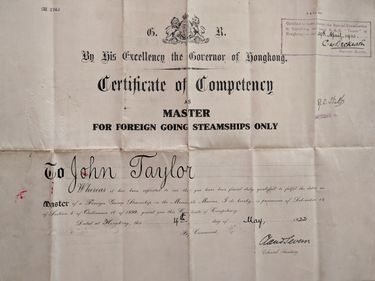 G. R.
By His Excellency the Governor of Hongkong.
Certificate of Competency
AS
MASTER
FOR FOREIGN GOING STEAMSHIPS ONLY
To John Taylor
Whereas it has been reported to me that you have been found duly qualified to fulfil the duties
Master of a Foreign Going Steamship in the Mercantile Marine, I do hereby, in pursuance of
Section 4 of Ordinance 10 of 1899, grant you this Certificate of Competency.
Dated at Hongkong, this 4th day of May, 1922
By Command,
Claud Severn
Colonial Secretary